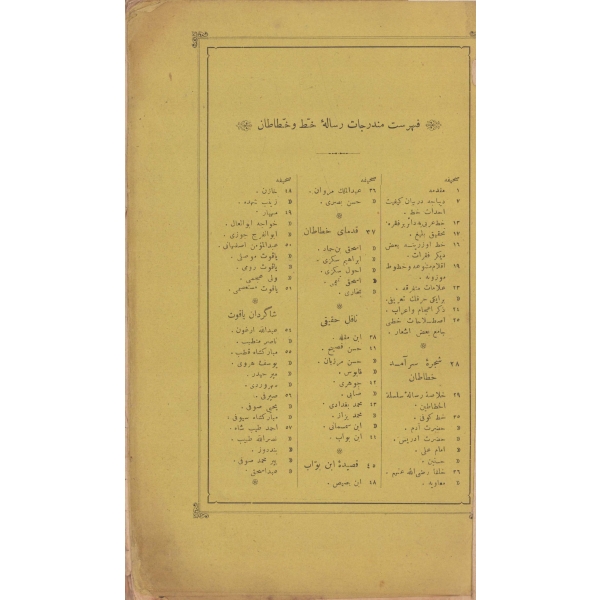 فهرست مندرجات رسالهٔ خط و خطاطان
صحیفه
١ مقدمه
٧ دیباجه دربیان کیفیت
احداث خط .
١٣ خط عربی یه دائر بر فقره .
١٧ تحقیق بلیغ .
١٦ خط اوزرینه بعض
دیکر فقرات .
١٩ اقلام متنوعه وخطوط
موزونه .
٢٣ علامات متفرقه .
٢٤ ذکر اعجام واعراب .
٢٥ اصطلاحات خطی
جامع بعض اشعار .
٢٨ شجرهٔ سرآمد
خطاطان
٢٩ خلاصهٔ رسالهٔ سلسلة
الخطاطین .
٣٥ خط کوفی .
» حضرت آدم .
» حضرت ادریس .
» امام علی .
» حسنین .
٣٦ خلفا رضی الله عنهم .
» معاویه .
صحیفه
٣٦ عبدالملک مروان .
» حسن بصری .
٣٧ قدمای خطاطان
» اسحق بن حماد .
» ابراهیم سکزی .
» احول سکزی .
» بخاری .
ناقل حقیقی
٣٨ ابن مقله .
٤١ حسن فصیح .
» حسن مرزبان .
» قابوس .
٤٢ جوهری .
» صابی .
٤٣ محمد بغدادی .
» محمد بزاز .
» ابن سمسمانی .
٤٤ ابن بواب .
٤٥ قصیدهٔ ابن بواب
٤٨ ابن بصیص .
صحیفه
٤٨ خازن .
» زینب شهده .
٤٩ مهیار .
» خواجه ابوالعال .
» ابوالفرج جوزی .
٥٠ عبدالمؤمن اصفهانی .
» یاقوت موصلی .
» یاقوت رومی .
» ولی عجمی .
٥١ یاقوت مستعصمی .
شاگردان یاقوت
٥٤ عبدالله ارغون .
» ناصر متطبب .
٥٥ مبارکشاه قطب .
» یوسف هروی .
» میر حیدر .
» سهروردی .
٥٦ صیرفی .
» یحیی صوفی .
» مبارکشاه سیوفی .
٥٧ احمد طیب شاه .
» نصرالله طبیب .
» پیر محمد صوفی .
» عبدالحق .